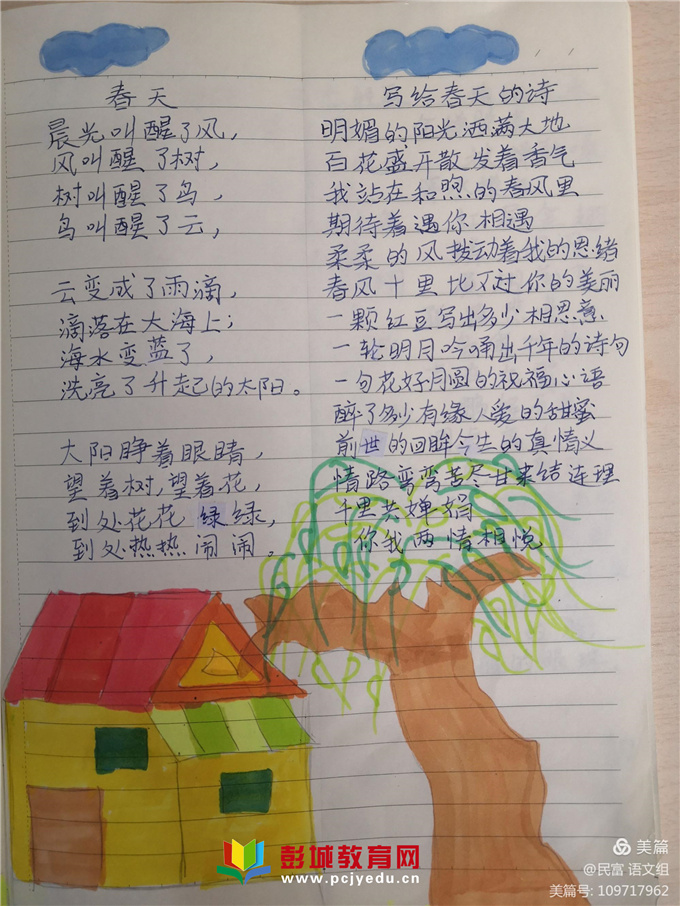 春天
晨光叫醒了风,
风叫醒了树,
树叫醒了鸟,
鸟叫醒了云,
云变成了雨滴,
滴落在大海上;
海水变蓝了,
洗亮了升起的太阳。
大阳睁着眼睛,
望着树,望着花,
到处花花绿绿,
到处热热闹闹。
写给春天的诗
明媚的阳光洒满大地
百花盛开散发着香气
我站在和煦的春风里
期待着遇你相遇
柔柔的风拨动着我的思绪
春风十里比不过你的美丽
一颗红豆写出多少相思意
一轮明月吟诵出千年的诗句
一句花好月圆的祝福心语
醉了多少有缘人爱的甜蜜
前世的回眸今生的真情义
情路弯弯苦尽甘来结连理
千里共婵娟
你我两情相悦
彭城教育网
www.pcjyedu.cn
美篇
@民富 语文组
美篇号: 109717962